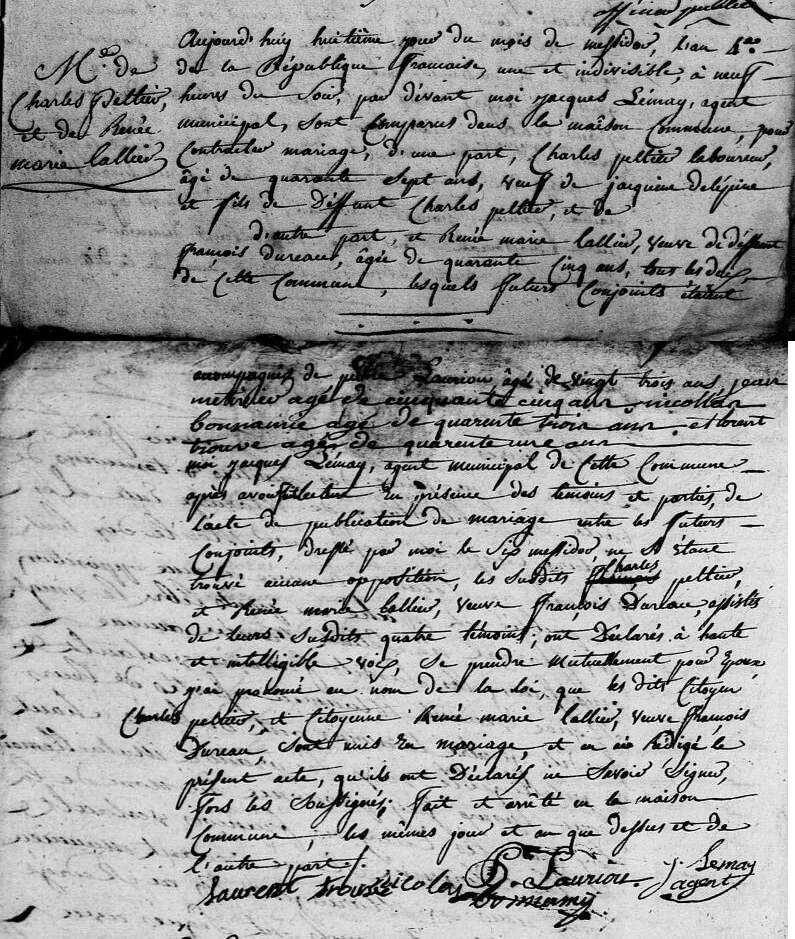 officier public
M.ge de
Charles Peltier,
et de Renée
marie lallier
Aujourd'huy huitième jour du mois de messidor, l'an 4.eme
de la République francaise, une et indivisible, à neuf
heures du Soir, par dévant moi jacques Lémay, agent
municipal, sont Comparus dans la maison Commune, pour
Contracter mariage, d'une part, Charles peltier laboureur,
âgé de quarante Sept ans, veuf de jacquine delépine
et fils de Déffunt Charles peltier, et de
d'autre part, et Renée marie lallier, veuve de déffunt
françois Dureau, âgée de quarante Cinq ans, tous les deux
de Cette Commune, lesquels futurs Conjoints étaient
accompagnés de pierre Lauriou, âgé de vingt trois ans, jean
agé de cinquante cinq ans nicollas
bonnamie agé de quarente trois ans et lorent
trouve agés de quarente une ans
moi jacques Lémay, agent municipal de Cette Commune
après avoir fait lecture En présence des témoins et parties, de
l'acte de publication de mariage entre les futurs
Conjoints, dressé par moi le Six messidor, ne S'étant
trouvé aucune opposition, les Susdits Charles peltier,
et Renée marie lallier, veuve françois Dureau, assistés
de leurs Susdits quatre témoins, ont Déclarés à haute
et intelligible voix, Se prendre Mutuellement pour Epoux,
j'ai prononcé au nom de la Loi, que les dits Citoyen
Charles peltier, et Citoyenne Renée marie lallier, veuve francois
Dureau, Sont unis En mariage, et en ai Rédigé le
présent acte, qu'ils ont Déclarés ne Savoir Signer,
fors les Soussignés; fait et arrêté en la maison
Commune, les mêmes jour et an que dessus et de
l'autre part /.
laurent trouve nicolas P. Lauriou. J. Lemay
bonnamy agent